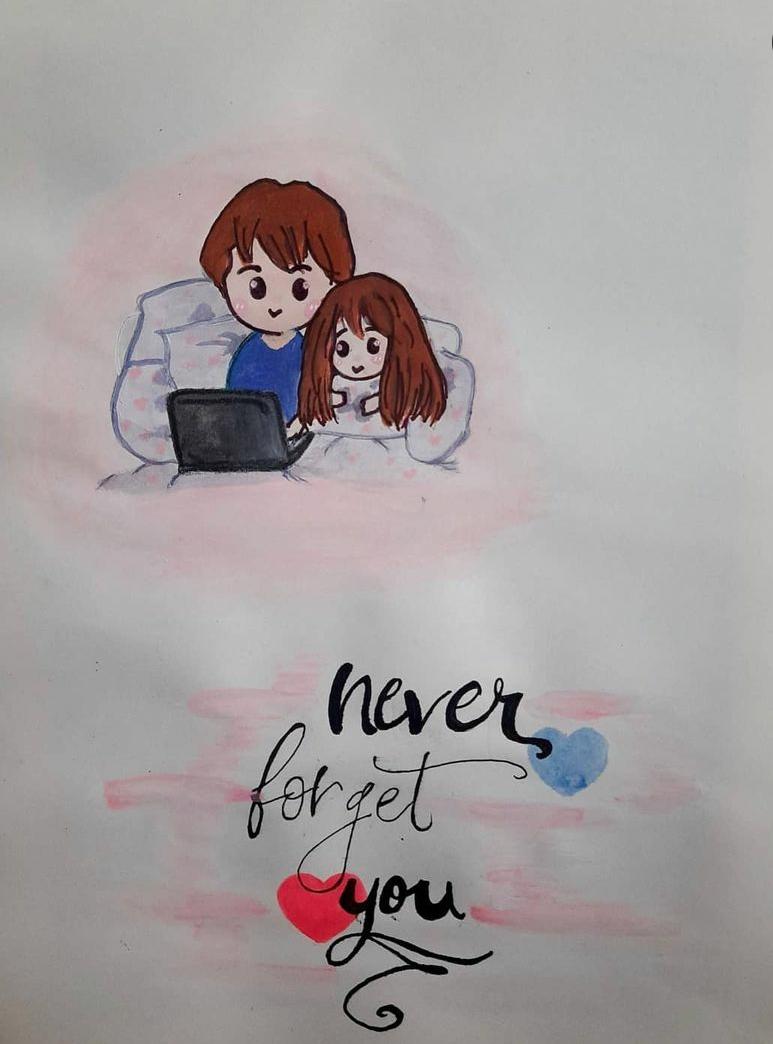 never
forget
you